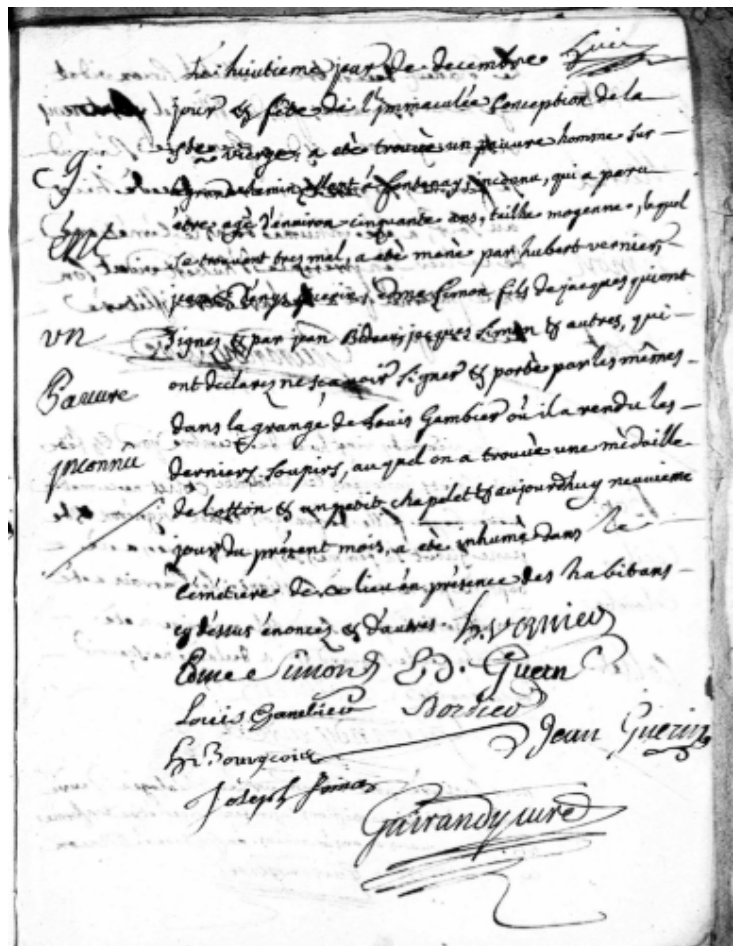 Le huictieme jour de decembre
jour & fête de l'immaculée Conception de la
Ste vierge, a etè trouvée un pauvre homme sur
le grand chemin allant à fontenay, inconu, qui a paru
être agé d'environ cinquante ans, taille moyenne, lequel
se trouvent tres mel, a etè menè par hubert vernier,
jean & Denys guerin, edme Simon fils de jacques qui ont
signés & par jean jacques Simon & autres, qui
ont declarez ne scavoir signer & portée par les mêmes
dans la grange de Louis Gambier où il a rendu les
derniers soupirs, auquel on a trouvée une médaille
de lotton & un petit chapelet & aujourdhuy neuvieme
jour du présent mois, a etè inhumé dans le
Cémétiere de ce lieu en présence des habitans
cy dessus énoncéz & d'autres
un
Pauvre
jnconnu
h. vernier
Edme Simon D. Guerin
Louis Gambier Bordier
h Bourgeois Jean Guerin
Joseph Prince
curé